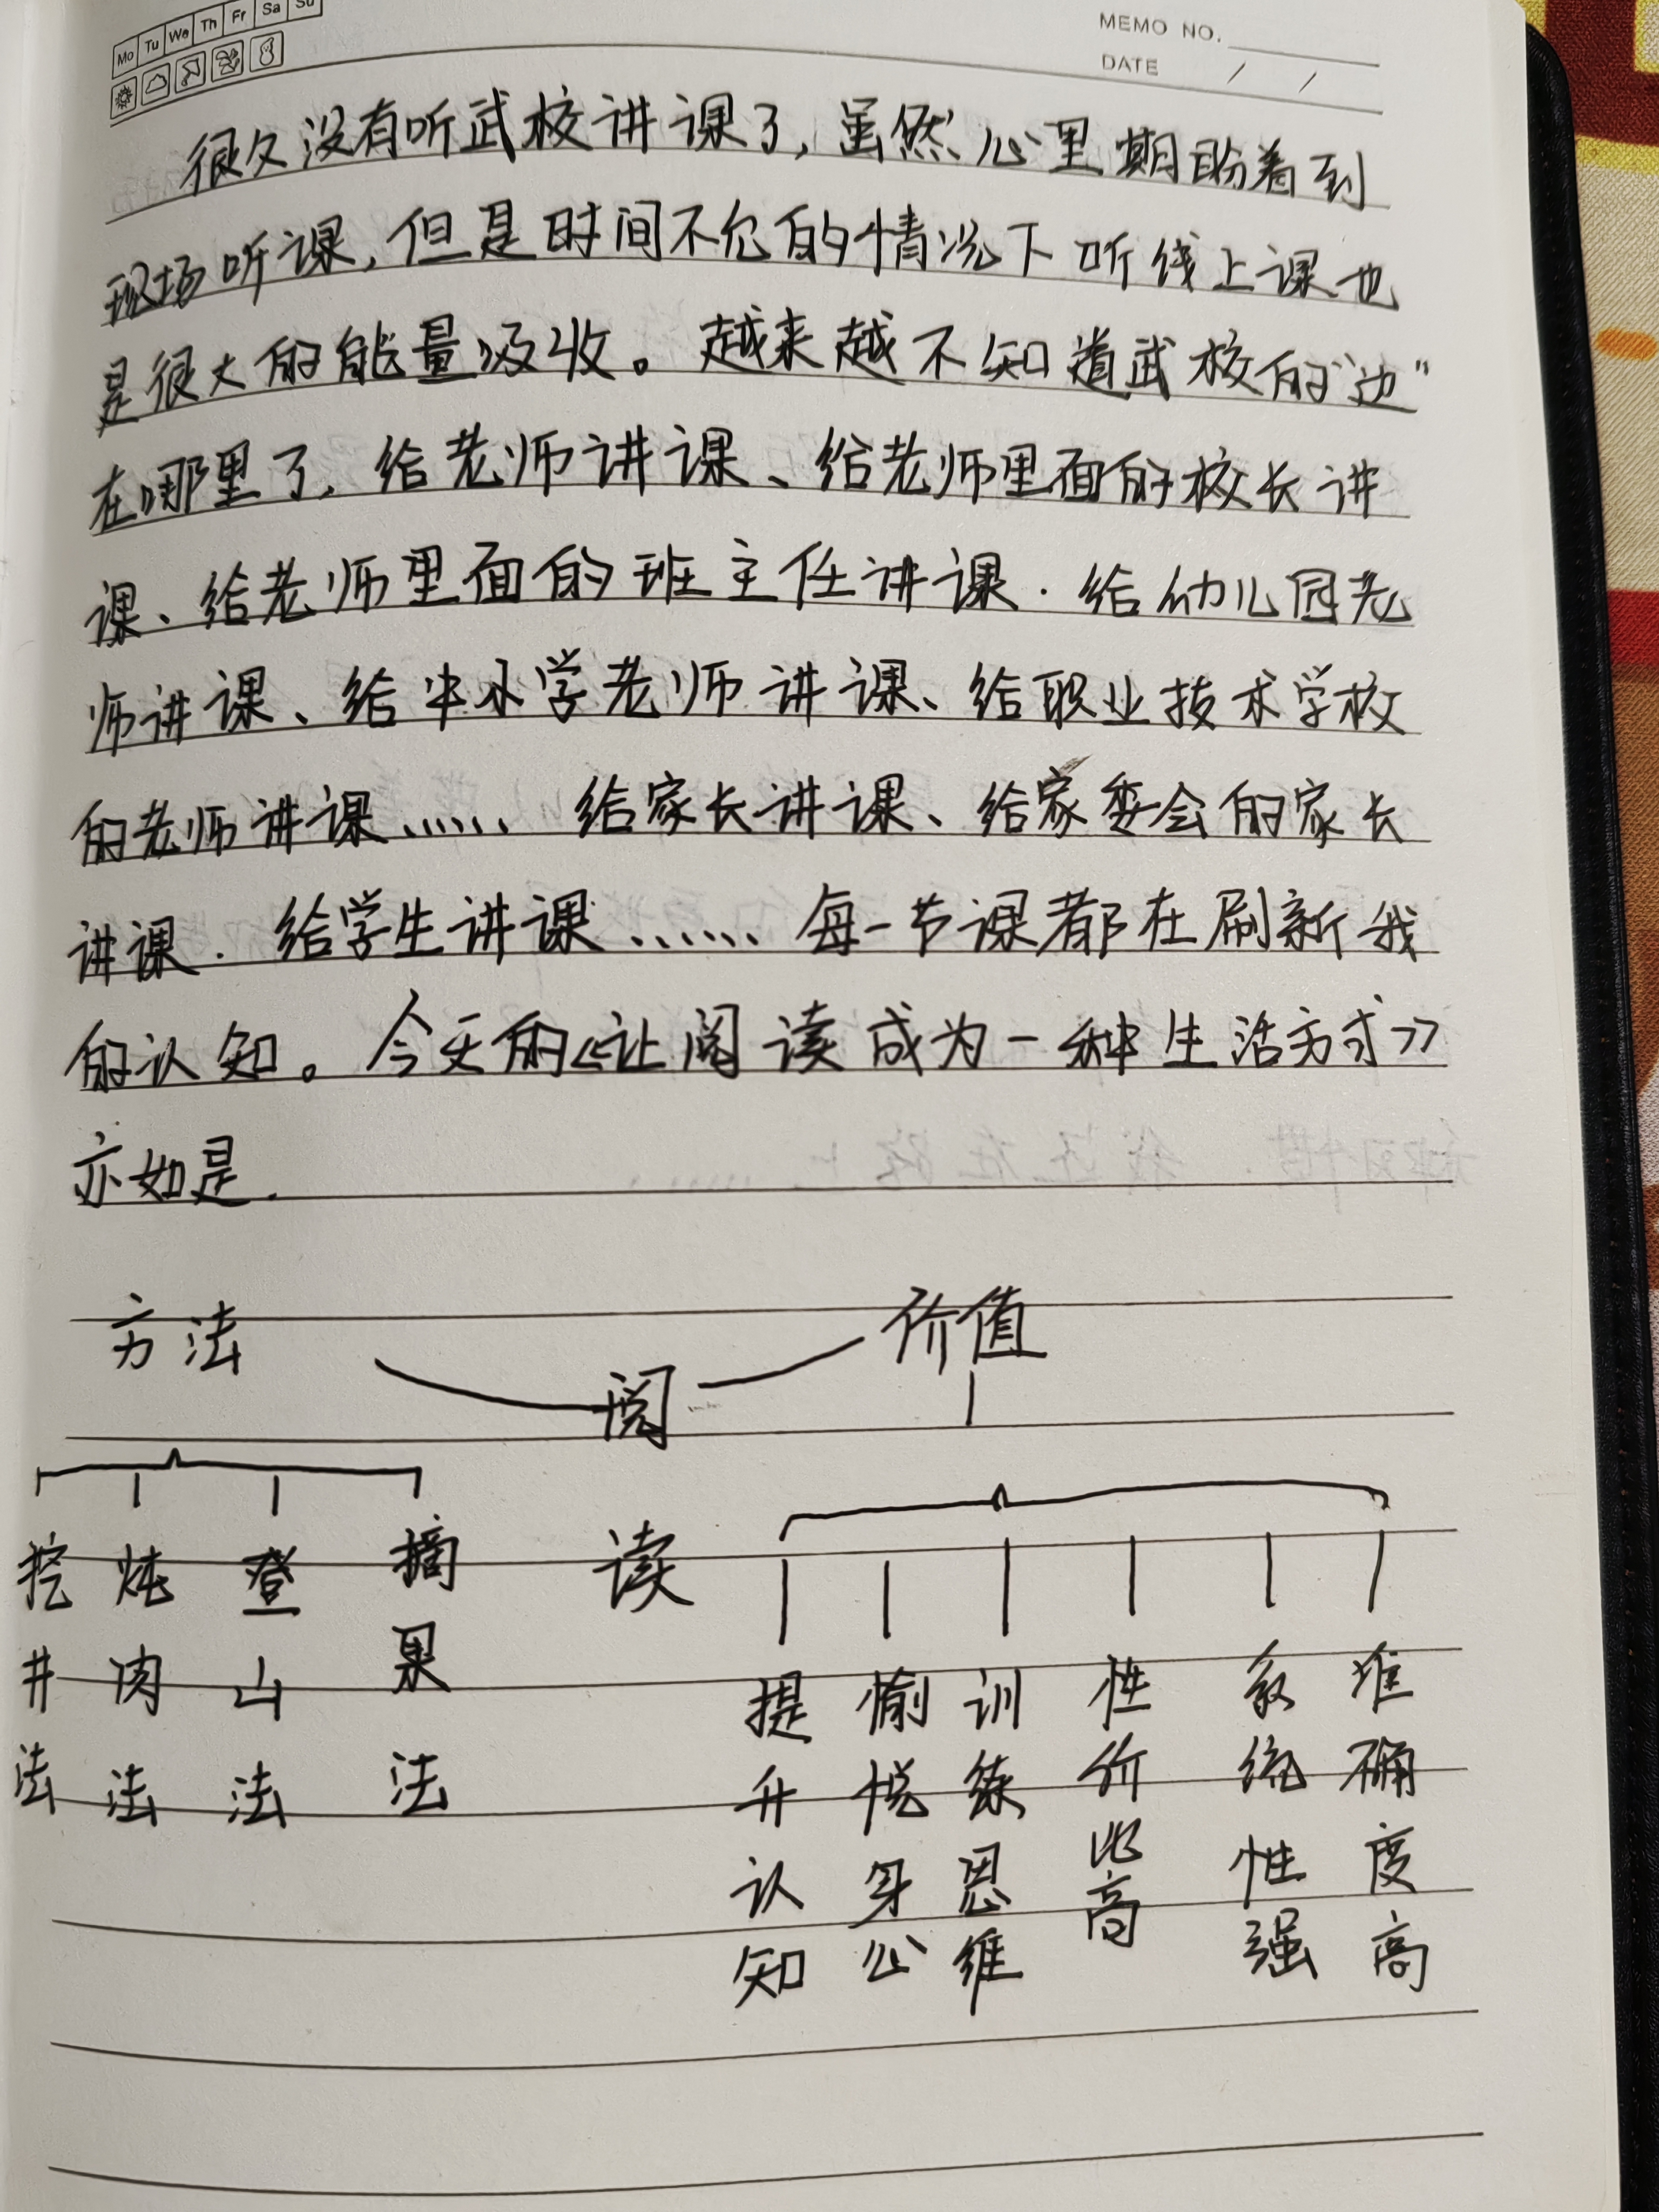 Mo Tu We Th Fr Sa Su
MEMO NO.
DATE / /
很久没有听武校讲课了，虽然心里期盼着到
现场听课，但是时间不允的情况下听线上课也
是很大的能量吸收。越来越不知道武校的“边”
在哪里了，给老师讲课、给老师里面的校长讲
课、给老师里面的班主任讲课．给幼儿园老
师讲课、给中小学老师讲课、给职业技术学校
的老师讲课、、、、、、给家长讲课、给家委会的家长
讲课．给学生讲课、、、、、、每一节课都在刷新我
的认知。今天的《让阅读成为一种生活方式》
亦如是．
方法
价值
阅
读
挖井法
炖肉法
登山法
摘果法
提升认知
愉悦身心
训练思维
性价比高
系统性强
准确度高